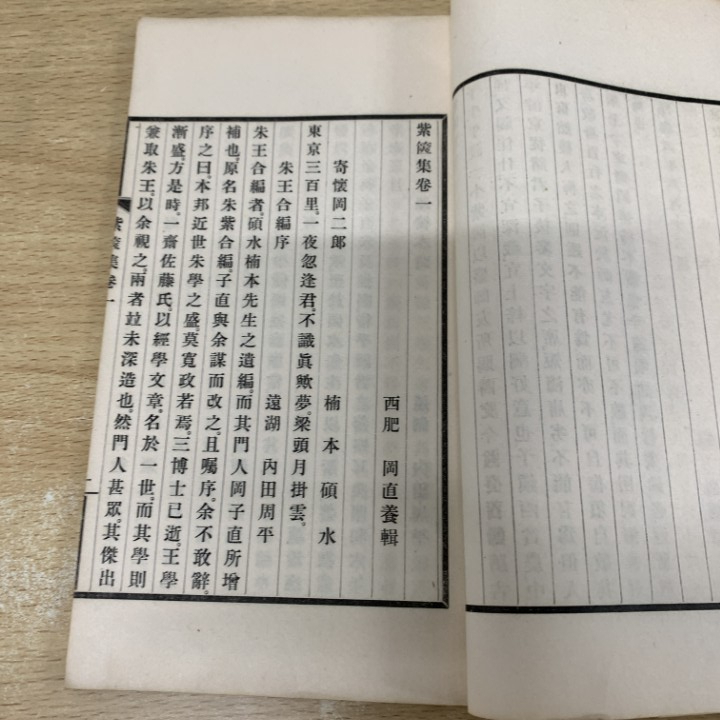 紫陵集卷一
西肥 岡直養輯
寄懷岡二郎
楠本碩水
東京三百里。一夜忽逢君。不識眞歟夢。梁頭月掛雲。
朱王合編序
遠湖 內田周平
朱王合編者。碩水楠本先生之遺編。而其門人岡子直所增
補也。原名朱紫合編。子直與余謀而改之。且囑序。余不敢辭。
序之曰。本邦近世朱學之盛。莫寬政若焉。三博士已逝。王學
漸盛。方是時。一齋佐藤氏。以經學文章。名於一世。而其學則
兼取朱王。以余視之。兩者竝未深造也。然門人甚眾。其傑出
紫陵集卷一
一